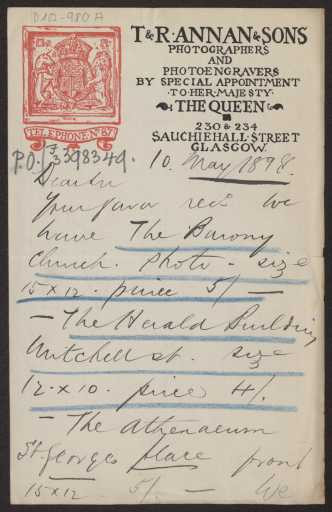 D12-980A
T & R · ANNAN & SONS
PHOTOGRAPHERS
AND
PHOTOENGRAVERS
BY SPECIAL APPOINTMENT
·TO·HER·MAJESTY·
·THE QUEEN·
230 & 234
SAUCHIEHALL·STREET
GLASGOW.
TELEPHONE Nº 87
P.O. 3/3 398349.
10. May 1898.
Dear Sir
Your favor recd We
have The Barony
Church. Photo - size
15 x 12 - price 5/ —
— The Herald Building
Mitchell St. size
12 · x 10. price 4/.
— The Athenaeum
St Georges place front
15 x 12 5/ — We